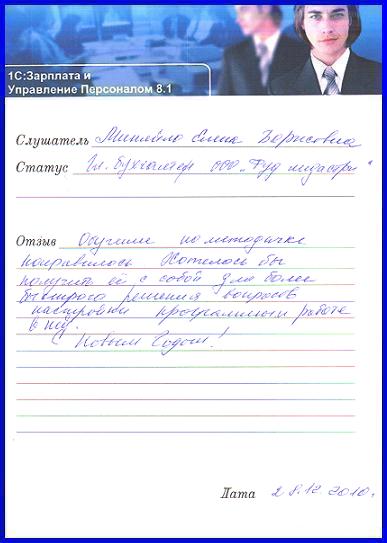 1С:Зарплата и
Управление Персоналом 8.1
Слушатель Минайло Елена Борисовна
Статус Гл. бухгалтер ООО „Фуд
Отзыв Обучение по методичке
понравилось Хотелось бы
получить её с собой для более
быстрого решения вопросов
настройки программы и работе
в ней.
С Новым Годом!
Дата 28.12.2010г.